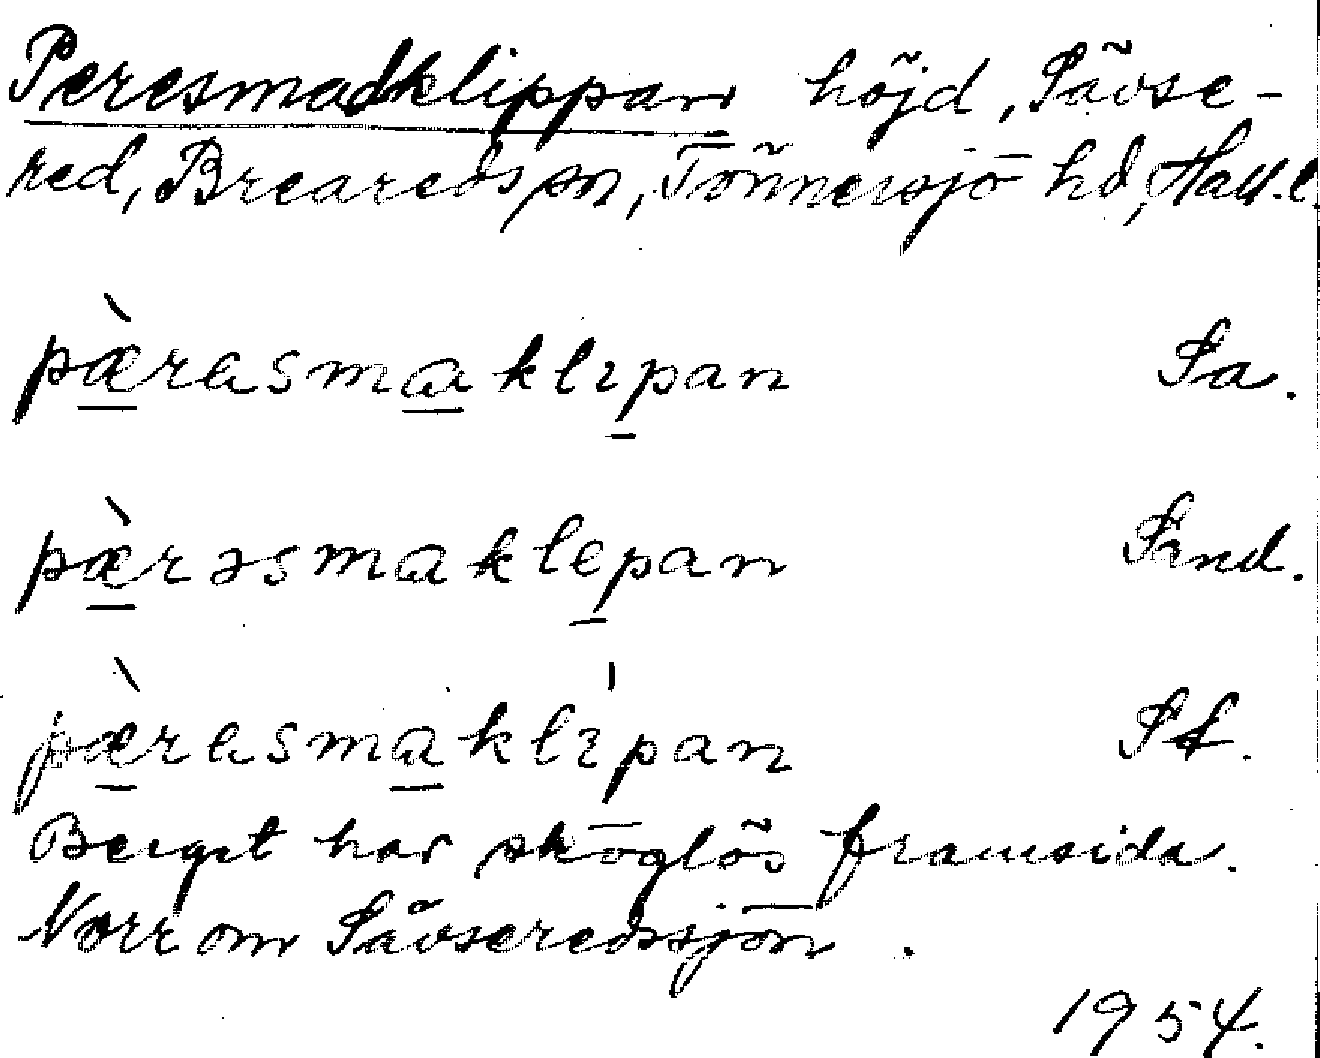 Peresmadklippan höjd, Sävse-
red, Breareds sn, Tönnersjö hd, Hall. l.
pæ̀rasmaklıpan Sa.
pæ̀rəsmaklepan Sand.
pæ̀rasmaklı̍pan Sf.
Berget har skoglös framsida.
Norr om Sävseredssjön.
1954.